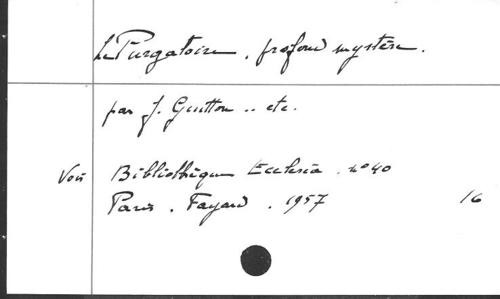 Le Purgatoire, profond mystère.
par J. Guitton .. etc.
Voir Bibliothèque Ecclesia. n° 40
Paris. Fayard. 1957 16